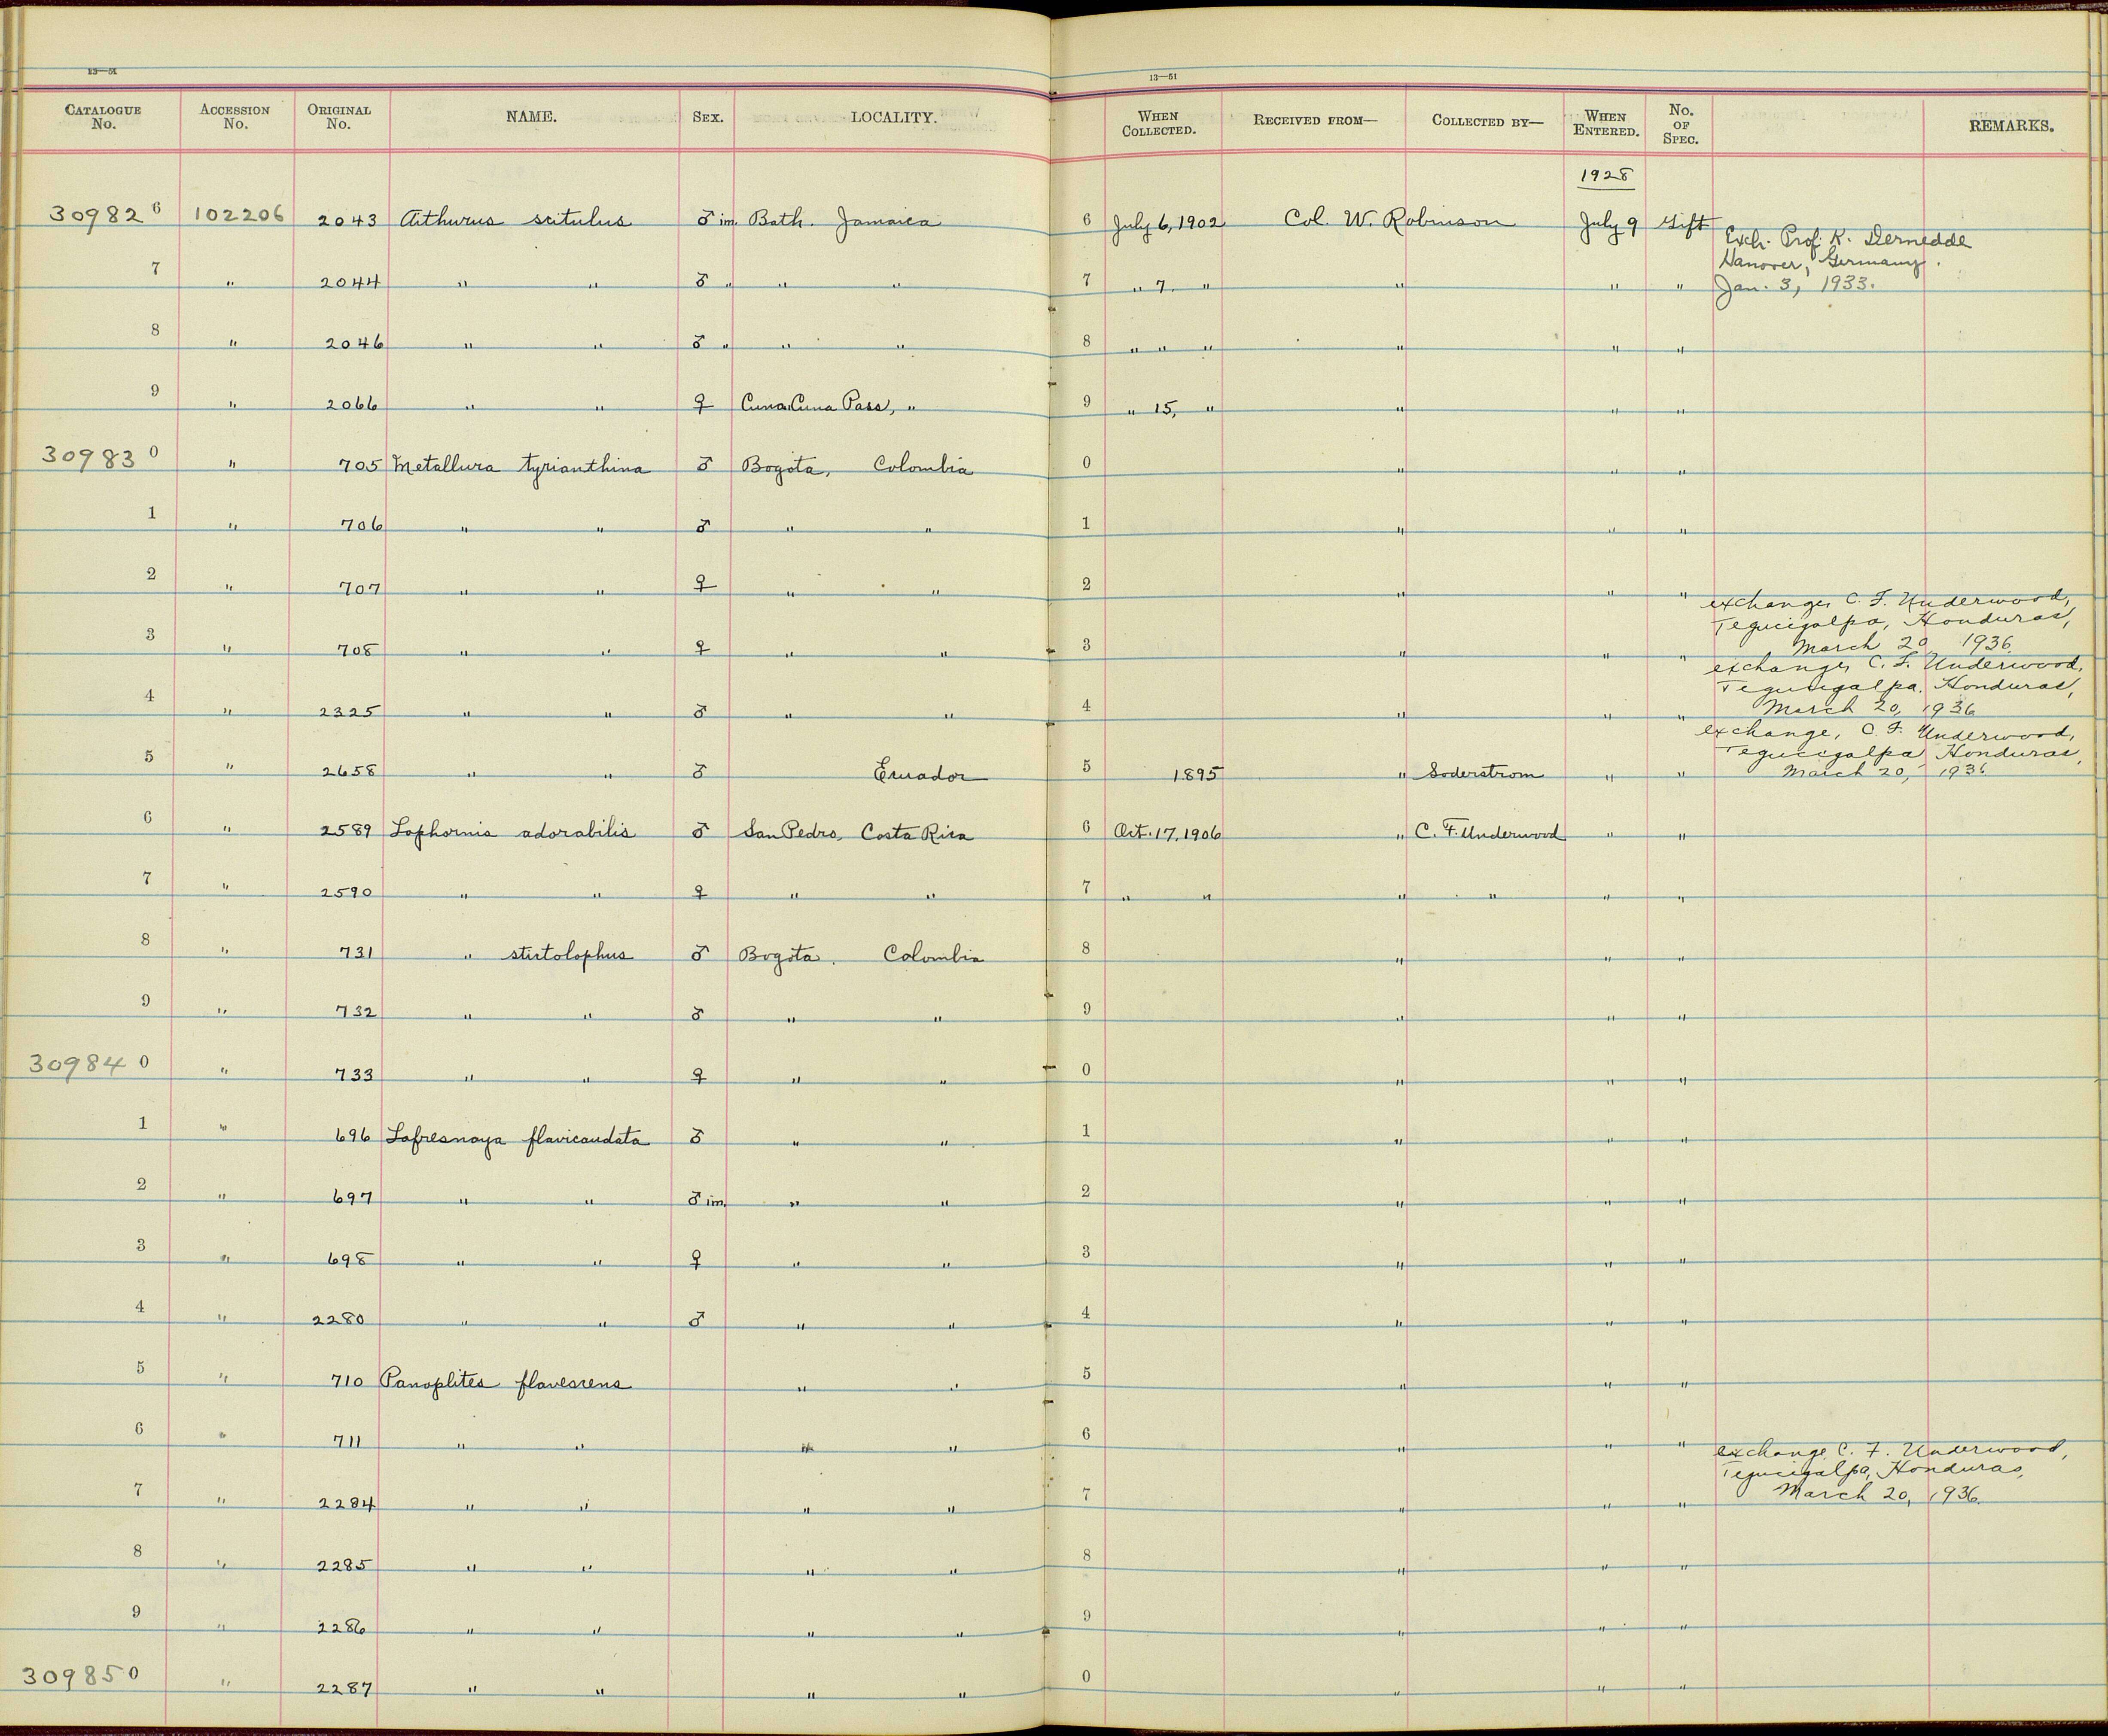 13—51
13—51
CATALOGUE No. ACCESSION No. ORIGINAL No. NAME. SEX. LOCALITY. WHEN COLLECTED. RECEIVED FROM— COLLECTED BY— WHEN ENTERED. No. OF SPEC. REMARKS.
1928
30982 6 102206 2043 Aithurus scitulus ♂ im. Bath. Jamaica 6 July 6, 1902 Col. W. Robinson July 9 Gift
Exch. Prof. K. Dernedde
Hanover, Germany.
7 " 2044 " " ♂ " " " 7 " 7. " " " " Jan. 3, 1933.
8 " 2046 " " ♂ " " " 8 " " " " " "
9 " 2066 " " ♀ Cuna Cuna Pass, " 9 " 15, " " " "
30983 0 " 705 Metallura tyrianthina ♂ Bogota, Colombia 0 " " "
1 " 706 " " ♂ " " 1 " " "
2 " 707 " " ♀ " " 2 " " "
exchange, C. F. Underwood,
Tegucigalpa, Honduras,
3 " 708 " " ♀ " " 3 " " " March 20 1936
exchange, C. F. Underwood,
Tegucigalpa, Honduras,
4 " 2325 " " ♂ " " 4 " " " March 20, 1936
exchange, C. F. Underwood,
Tegucigalpa Honduras,
5 " 2658 " " ♂ Ecuador 5 1895 " Soderstrom " " March 20, 1936
6 " 2589 Lophornis adorabilis ♂ San Pedro, Costa Rica 6 Oct. 17, 1906 " C. F. Underwood " "
7 " 2590 " " ♀ " " 7 " " " " " "
8 " 731 " stictolophus ♂ Bogota. Colombia 8 " " "
9 " 732 " " ♂ " " 9 " " "
30984 0 " 733 " " ♀ " " 0 " " "
1 " 696 Lafresnaya flavicaudata ♂ " " 1 " " "
2 " 697 " " ♂ im. " " 2 " " "
3 " 698 " " ♀ " " 3 " " "
4 " 2280 " " ♂ " " 4 " " "
5 " 710 Panoplites flavescens " " 5 " " "
6 " 711 " " " " 6 " " "
exchange C. F. Underwood,
Tegucigalpa, Honduras,
7 " 2284 " " " " 7 " " " March 20, 1936
8 " 2285 " " " " 8 " " "
9 " 2286 " " " " 9 " " "
30985 0 " 2287 " " " " 0 " " "